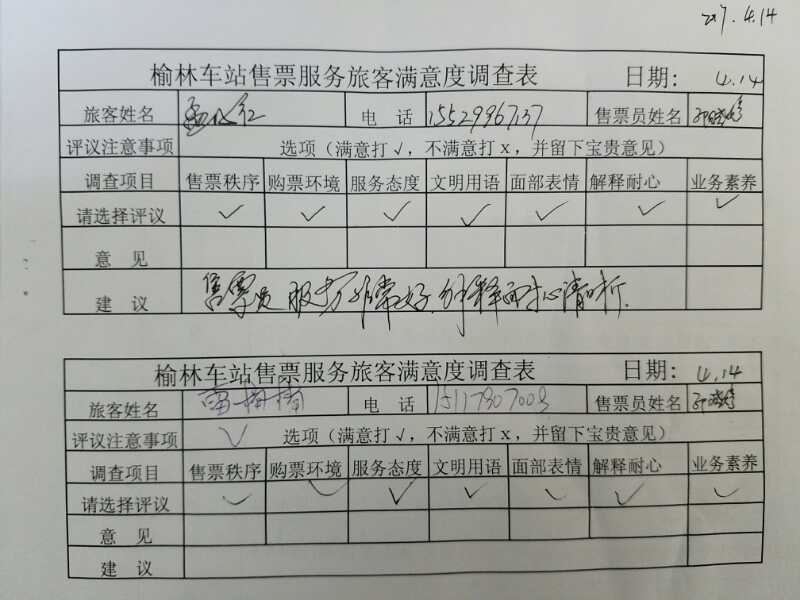 2017.4.14
榆林车站售票服务旅客满意度调查表 日期: 4.14
旅客姓名 电 话 15529967137 售票员姓名
评议注意事项 选项（满意打√，不满意打x，并留下宝贵意见）
调查项目 售票秩序 购票环境 服务态度 文明用语 面部表情 解释耐心 业务素养
请选择评议 ✓ ✓ ✓ ✓ ✓ ✓ ✓
意 见
建 议 售票员服务非常好.解释耐心清晰.
榆林车站售票服务旅客满意度调查表 日期: 4.14
旅客姓名 电 话 售票员姓名
评议注意事项 ✓ 选项（满意打√，不满意打x，并留下宝贵意见）
调查项目 售票秩序 购票环境 服务态度 文明用语 面部表情 解释耐心 业务素养
请选择评议 ✓ ✓ ✓ ✓ ✓ ✓ ✓
意 见
建 议